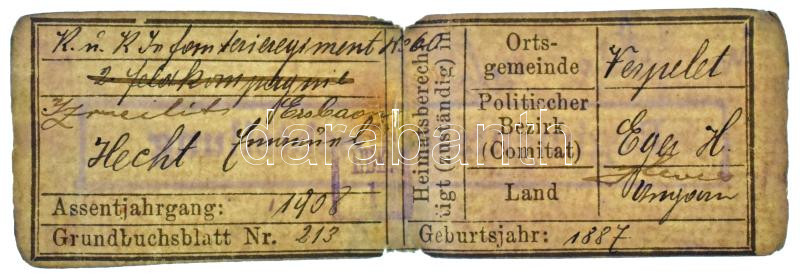 K. u. K Infanterieregiment No 60
2 feldkompagnie
Izraelit
Hecht Emanuel
Assentjahrgang: 1908
Grundbuchsblatt Nr. 213
Heimatsberech
tigt (zuständig) in
Ortsgemeinde Verpelet
Politischer Bezirk (Comitat) Eger H.
Land Ungarn
Geburtsjahr: 1887
darabanth